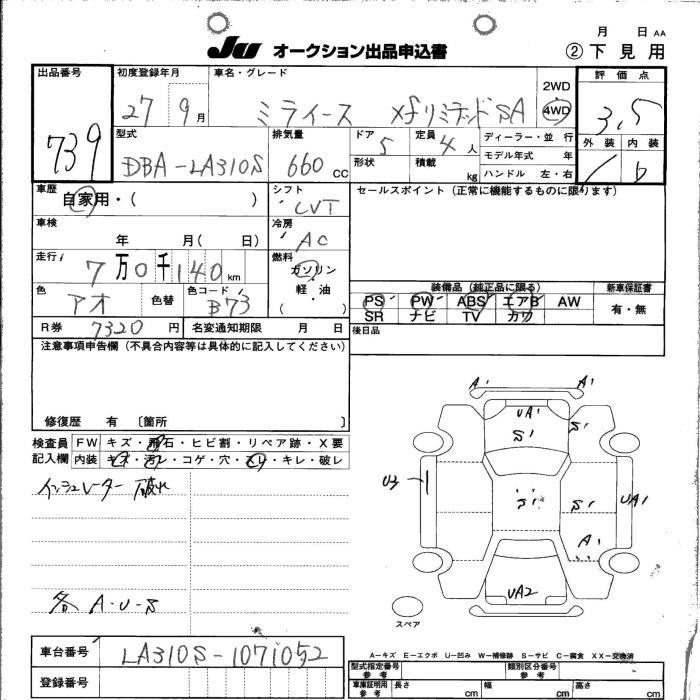 月 日 AA
JU オークション出品申込書 ② 下見用
出品番号 初度登録年月 車名・グレード 2WD 評価点
739 27 9月 ミライース Xfリミテッド SA 4WD 3.5
型式 排気量 ドア 定員 ディーラー・並行 外装 内装
DBA-LA310S 660 CC 5 4人 モデル年式 年
形状 積載 kg ハンドル 左・右 b
車歴 シフト セールスポイント(正常に機能するものに限ります)
自家用・( ) CVT
車検 冷房
年 月( 日) AC
走行 燃料
7万0千140km ガソリン
軽・油
( )
色 色替 色コード 装備品(純正品に限る) 新車保証書
アオ B73 PS PW ABS エアB AW 有・無
SR ナビ TV カワ
R券 7320円 名変通知期限 月 日 後日品
注意事項申告欄(不具合内容等は具体的に記入してください)
修復歴 有 〔箇所 〕
検査員 FW キズ・飛石・ヒビ割・リペア跡・X要
記入欄 内装 キズ・汚レ・コゲ・穴・スレ・キレ・破レ
インシュレーター 破れ
各 A・U・S
A' A'
UA' S'
S'
U3 S' S' UA'
A'
UA2
スペア
A-キズ E-エクボ U-凹み W-補修跡 S-サビ C-腐食 XX-交換済
車台番号 LA310S-1071052
登録番号
型式指定番号 類別区分番号
参考 参考
車庫証明用 長さ 幅 高さ
参考 cm cm cm